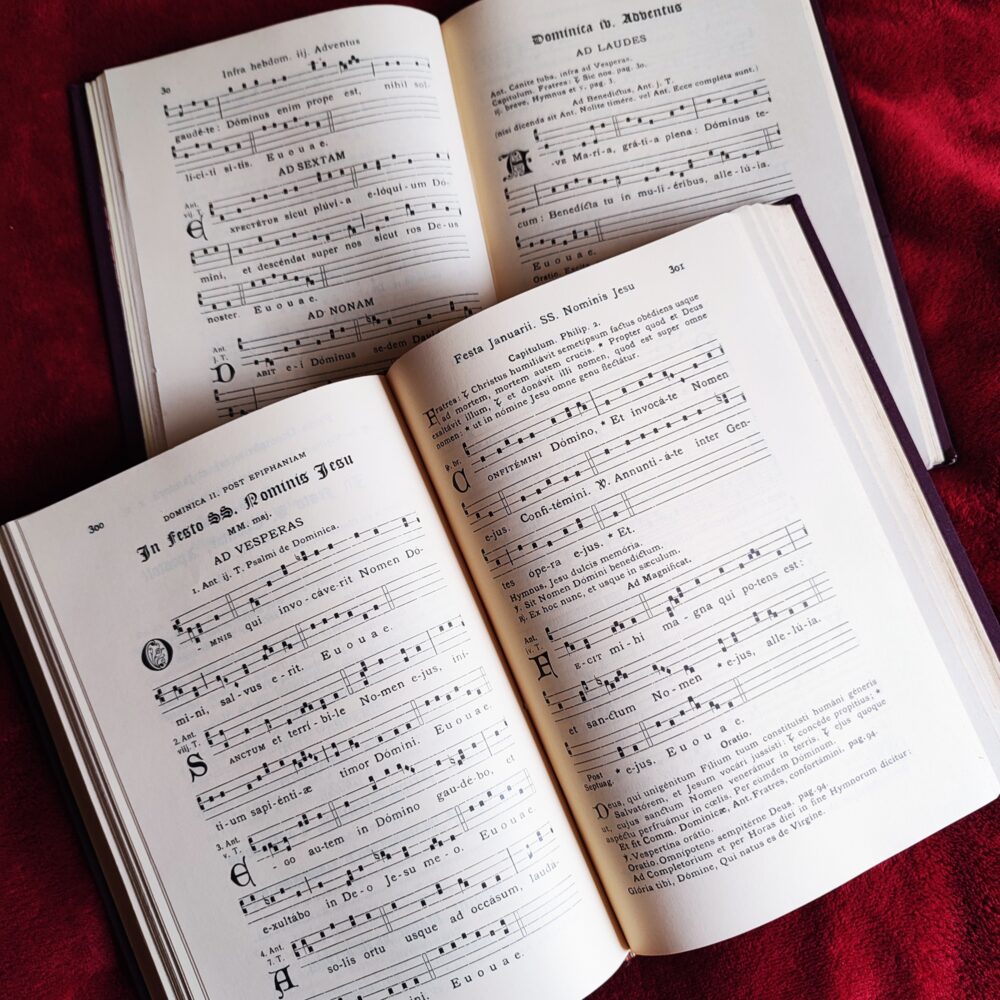 30
Infra hebdom. iij. Adventus
gaudé-te: Dóminus enim prope est, nihil sol-
li-ci-ti si-tis. E u o u a e.
AD SEXTAM
Ant.
vij. T.
EXPECTÉTUR sicut plúvi-a e-lóqui-um Dó-
mini, et descéndat super nos sicut ros De-us
noster. E u o u a e.
AD NONAM
Ant.
j. T.
DABIT e-i Dóminus sedem Davi
Dominica iv. Adventus
AD LAUDES
Ant. Cánite tuba, infra ad Vesperas.
Capitulum. Fratres: Sic nos. pag. 30.
ij. breve, Hymnus et ℣. pag. 3.
Ad Benedictus, Ant. j. T.
(nisi dicenda sit Ant. Nolite timére. vel Ant. Ecce completa sunt.)
A-VE Ma-rí-a, grá-ti-a plena: Dóminus te-
cum: Benedícta tu in mu-li-éribus, alle-lú-ia.
E u o u a e.
Oratio.
300
DOMINICA II. POST EPIPHANIAM
In Festo SS. Nominis Jesu
MM. maj.
AD VESPERAS
1. Ant. ij. T. Psalmi de Dominica.
O-MNIS qui invo-cáve-rit Nomen Dó-
mi-ni, sal-vus e-rit. E u o u a e.
2. Ant.
viij. T.
SANCTUM et terrí-bi-le No-men e-jus, iní-
ti-um sapi-énti-æ timor Dómi-ni. E u o u a e.
3. Ant.
v. T.
E-GO autem in Dómino gau-dé-bo, et
e-xultábo in De-o Je-su me-o. E u o u a e
4. Ant.
7. T.
A so-lis ortu usque ad occásum, laudá-
E u o u a e.
Festa Januarii. SS. Nominis Jesu
301
Capitulum. Philip. 2.
Fratres: Christus humiliávit semetípsum factus obédiens usque
ad mortem, mortem autem crucis. * Propter quod et Deus
exaltávit illum, et donávit illi nomen, quod est super omne
nomen: * ut in nómine Jesu omne genu flectátur.
℟. br.
CONFITÉMINI Dómino, * Et invocá-te Nomen
e-jus. Confi-témini. ℣. Annunti-á-te inter Gen-
tes ópe-ra e-jus. * Et.
Hymnus. Jesu dulcis memória.
℣. Sit Nomen Dómini benedíctum.
℟. Ex hoc nunc, et usque in sæculum.
Ad Magnificat.
Ant.
iv. T.
FECIT mi-hi ma-gna qui pot-ens est:
et san-ctum No-men * e-jus, alle-lú-ia.
Post
Septuag. * e-jus. E u o u a e.
Oratio.
Deus, qui unigénitum Fílium tuum constituísti humáni géneris
Salvatórem, et Jesum vocári jussísti: concéde propítius; *
ut, cujus sanctum Nomen venerámur in terris, ejus quoque
aspéctu perfruámur in cœlis. Per eúmdem Dóminum.
Et fit Comm. Dominicæ, Ant. Fratres, confortámini. pag. 94.
℣. Vespertina orátio.
Oratio. Omnipotens sempitérne Deus. pag. 94.
Ad Completorium et per Horas diei in fine Hymnorum dicitur:
Glória tibi, Dómine, Qui natus es de Vírgine.